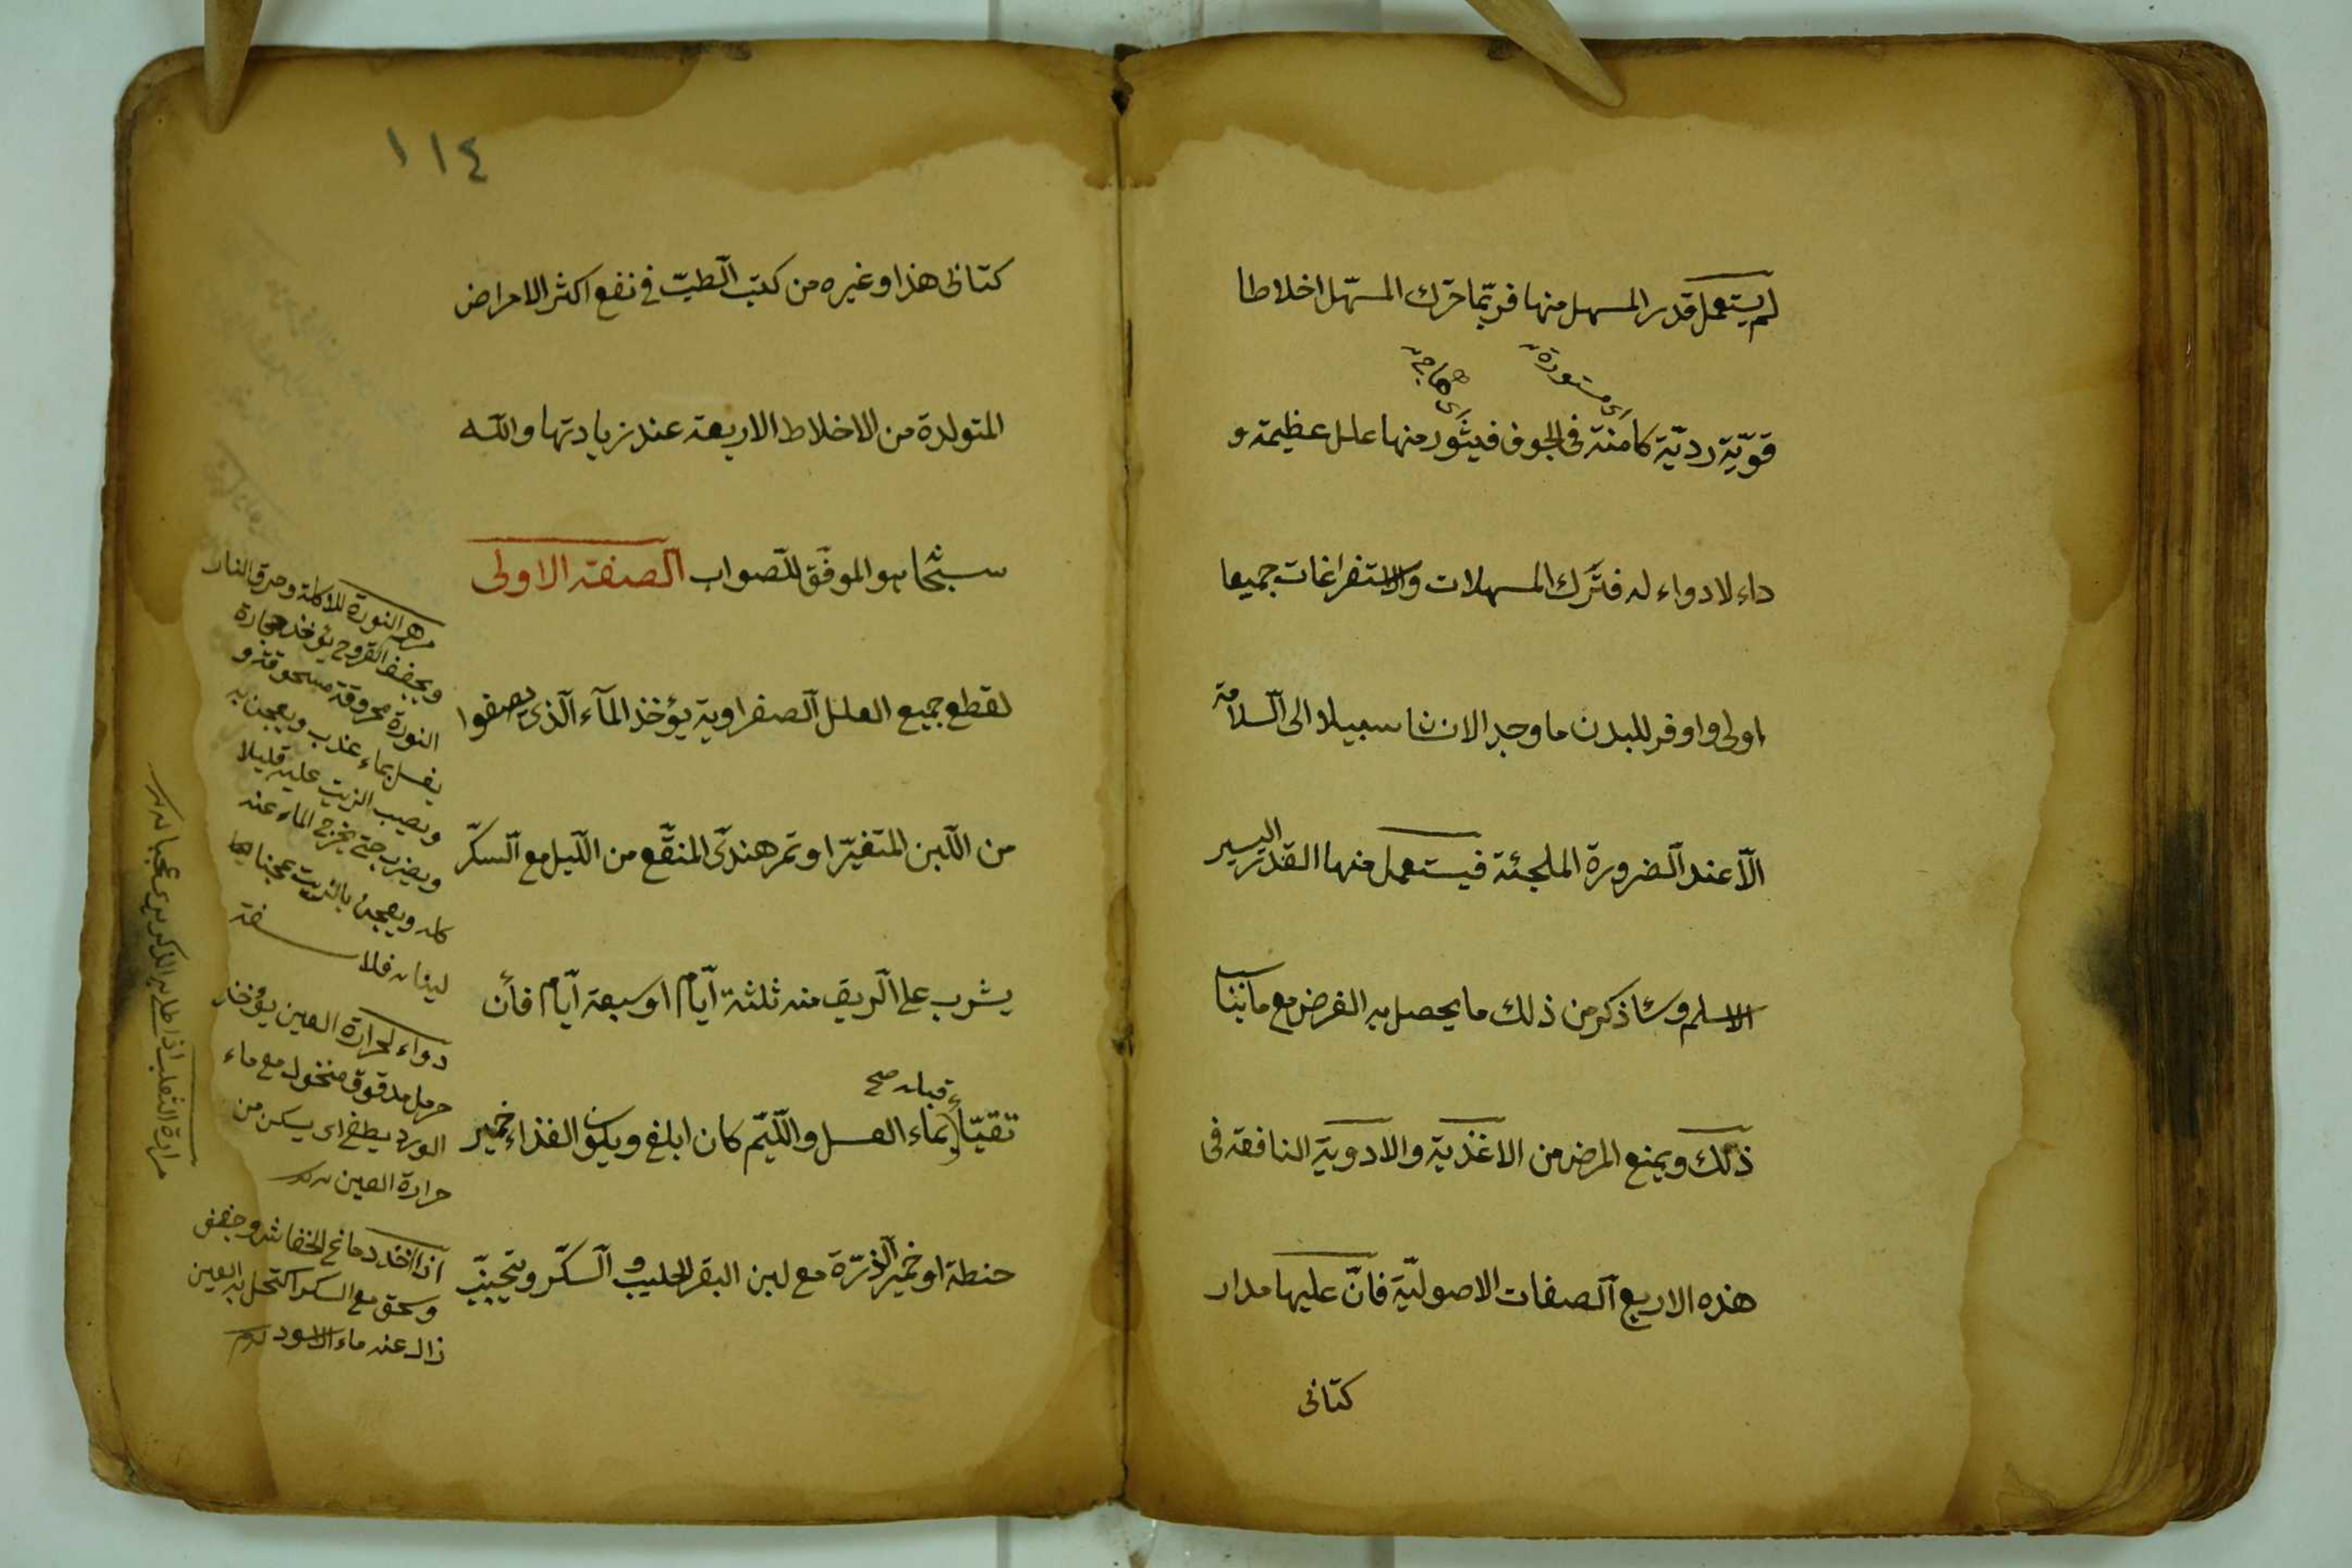 لم يستعمل قدر المسهل منها فربّما حرّك المسّهل اخلاطا
اى مستورة
اى هاجٍ
قوّيّة رديّة كامنة فى الجوف فيثور منها علل عظيمة و
داء لا دواء له فتَرك المسهلات والاستفراغات جميعا
اولى واوفر للبدن ما وجد الانسان سبيلا الى السّلامة
الّا عند الضرورة الملجئة فيستعمل منها القدر اليسير
الاسلم وساذكر من ذلك ما يحصل به الغرض مع مانبنا
ذلك ويمنع المرض من الاغذية والادوية النافعة فى
هذه الاربع الصفات الاصوليّة فانّ عليها مدار
كتابى
١١٤
كتابى هذا وغيره من كتب الطبّ فى نفع اكثر الامراض
المتولدة من الاخلاط الاربعة عند زيادتها والله
سبحانه هو الموفّق للصواب الصفة الاولى
لقطع جميع العلل الصفراوية يؤخذ المآء الّذى يصفوا
من اللبن المتغيّر او تمر هندىّ المنقّع من الليل مع السكّر
يشرب على الريق منه ثلثة ايّام او سبعة ايّام فأن
تقيّأ قبله صح بماء العسل واللّيم كان ابلغ ويكون الغذاء خمير
حنطة او خمير الذرّة مع لبن البقر الحليب والسكّر ويتجنّب
مرهم النورة للاكلة وحرق النار
ويجفف القروح يؤخذ حجارة
النورة محروقة مسحوقة و
يغسل بماء عذب ويعجن به
ويصب الزيت عليه قليلا
ويضرب حتى يخرج الماء عنه
كله ويعجن بالزيت عجنا
دواء لحرارة العين يؤخذ
حرمل مدقوق منخول مع ماء
الورد يطفى اى يسكن من
حرارة العين
اذا اخذ دماغ الخفاش وجفف
وسحق مع السكر اكتحل به العين
زال عنه ماء الاسود
مرارة الثعلب اذا طلا به الذكر يرى عجبا